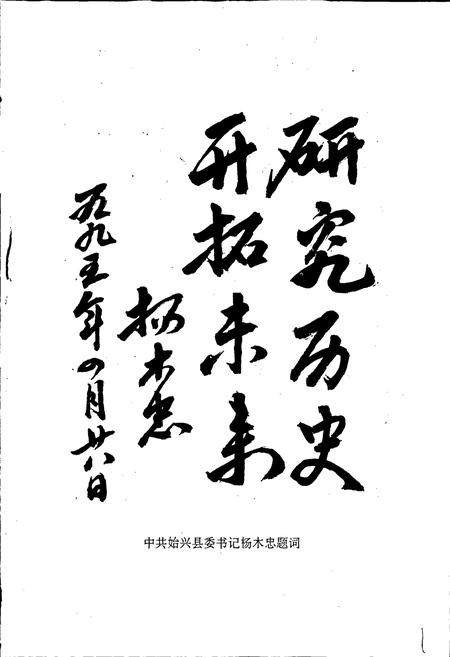 研究历史
开拓未来
杨木忠
一九九五年四月廿八日
中共始兴县委书记杨木忠题词